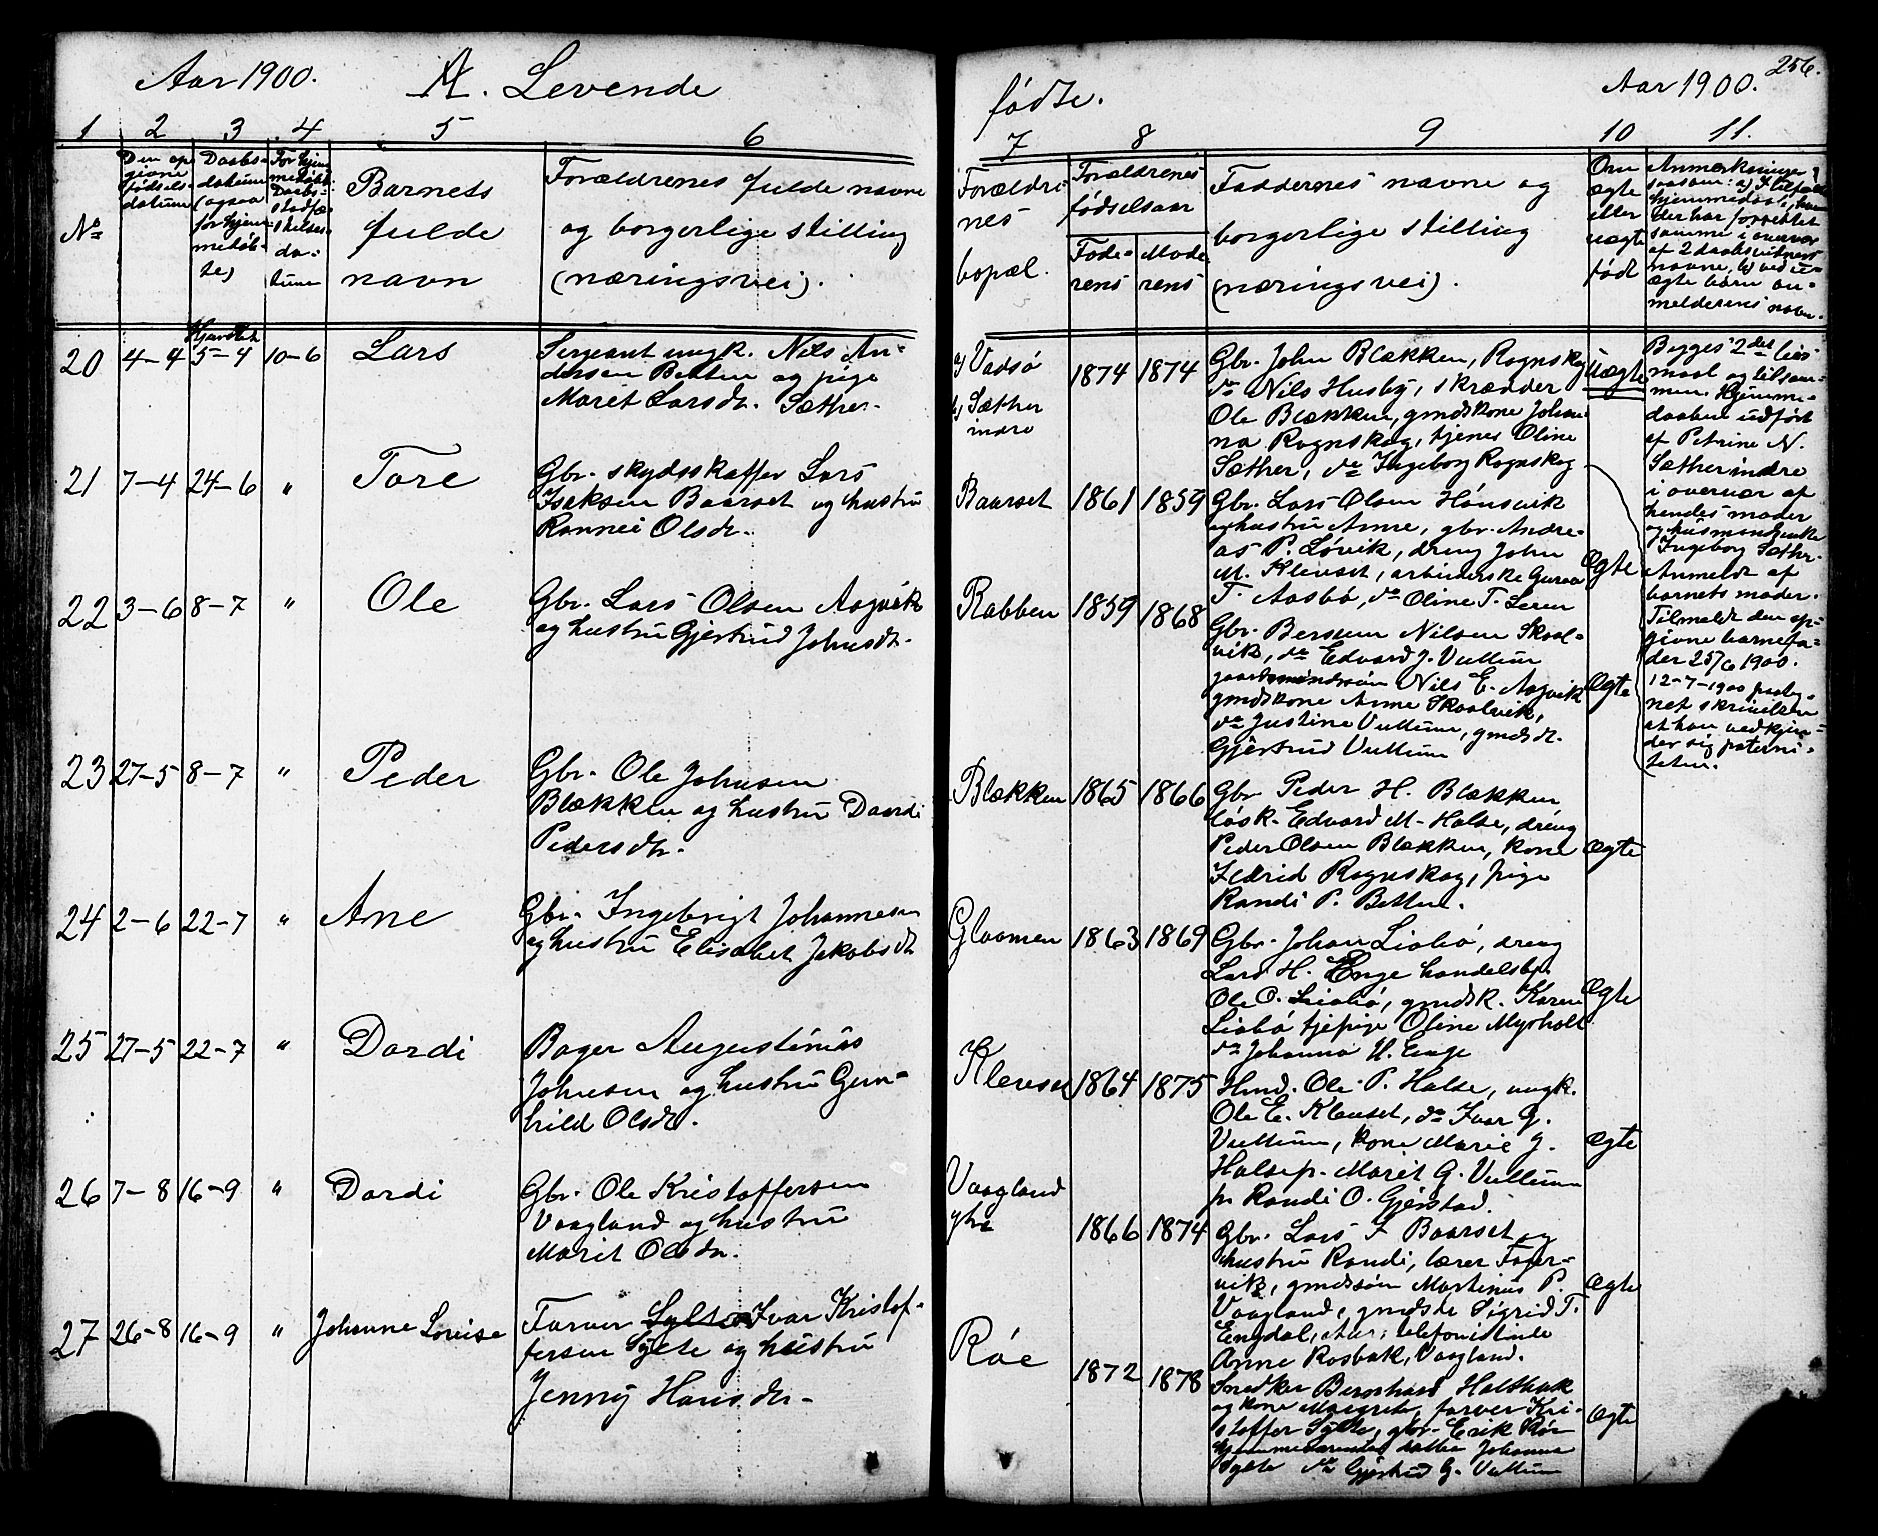 Aar 1900. A. Levende
fødte. Aar 1900. 256.
1 2 3 4 5 6
7 8 9 10 11.
No
Den op-
givne
fødsels-
datum
Daabs-
datum
(ogsaa
for hjem-
medøb-
te)
For hjem-
medøbte
Daabs-
stadfæ-
stelses-
da-
tum
Barnets
fulde
navn
Forældrenes fulde navne
og borgerlige stilling
(næringsvei).
Forældre
nes
bopæl.
Forældrenes
fødselsaar
Fade-
rens
Mode
rens
Faddernes navne og
borgerlige stilling
(næringsvei).
Om
ægte
eller
uægte
født
Anmærkninger
saasom: a) I tilfælde
hjemmedaab, hvem
der har forrettet
samme i overvær
af 2 daabsvidners
navne, b) ved u-
ægte børn an-
melderens navn.
20 4-4 Hjemdøbt 5-4 10-6 Lars
Sergeant ungk. Nils An-
dersen Betten og pige
Marit Larsdr. Sæther.
f) Vadsø
m) Sæther
indre
1874 1874
Gbr. John Blækken, Rognskog
do Nils Husby, skræder
Ole Blækken, gmdskone Johan-
na Rognskog, tjenes Oline
Sæther, do Ingeborg Rognskog
Uægte
Begges 2det leier-
maal og tilsam-
men. Hjemme-
daaben udført
af Petrine N.
Sæther indre
i overvær af
hendes moder
og husmandsenke
Ingeborg Sæther.
Anmeldt af
barnets moder.
Tilmeldt den op-
givne barnefa-
der 25/6 1900.
12-7-1900 paateg-
net skrivelsen
at han vedkjen-
der sig paterni-
teten.
21 7-4 24-6 " Tore
Gbr. skydsskaffer Lars
Isaksen Baarset og hustru
Rannei Olsdr.
Baarset 1861 1859
Gbr. Lars Olsen Hønsvik
og hustru Anne, gbr. Andre-
as P. Løvik, dreng John
M. Klevset, arbeiderske Guroa
T. Aasbø, do Oline T. Leren
Ægte
22 3-6 8-7 " Ole
Gbr. Lars Olsen Aagvik
og hustru Gjertrud Johnsdr.
Rabben 1859 1868
Gbr. Bersvein Nilsen Skaal-
vik, do Edvard J. Vullum
gaardmandssøn Nils E. Aagvik
gmdskone Anne Skaalvik,
do Justine Vullum, gmdsdt.
Gjertrud Vullum
Ægte
23 27-5 8-7 " Peder
Gbr. Ole Johnsen
Blækken og hustru Dordi
Pedersdtr.
Blækken 1865 1866
Gbr Peder H. Blækken
løsk. Edvard M. Halse, dreng
Peder Olsen Blækken, kone
Sedrid Rognskog, pige
Randi P. Betten.
Ægte
24 2-6 22-7 " Ane
Gbr. Ingebrigt Johannesen
og hustru Elisabet Jakobsdt
Glaamen 1863 1869
Gbr. Johan Liabø, dreng
Lars H. Enge handelsb.
Ole O. Liabø, gmdsk. Karen
Liabø tjepige Oline Myrholt
do Johanna H. Enge
Ægte
25 27-5 22-7 " Dordi
Bager Augustinus
Johnsen og hustru Gun-
hild Olsdr.
Klevset 1864 1875
Hmd. Ole P. Halse, ungk.
Ole E. Klevset, do Ivar G.
Vullum, kone Marie J.
Halse p. Marit G. Vullum
p. Randi O. Gjerstad.
Ægte
26 7-8 16-9 " Dordi
Gbr. Ole Kristoffersen
Vaagland og hustru
Marit Olsdr.
Vaagland
ytre
1866 1874
Gbr. Lars I Baarset og
hustru Randi, lærer Fager-
vik, gmdssøn Martinus P.
Vaagland, gmdsdt Sigrid T.
Engdal, telefonistinde
Anne Rosbak, Vaagland.
Ægte
27 26-8 16-9 " Johanne Lovise
Farver Sylte Ivar Kristof-
fersen Sylte og hustru
Jenny Hansdr.
Røe 1872 1878
Snedker Bernhard Holtbak
og kone Margrete, farver Kri-
stoffer Sylte, gbr. Erik Røe
hjemmeværende datter Johanna
Sylte do Gjertrud G. Vullum
Ægte